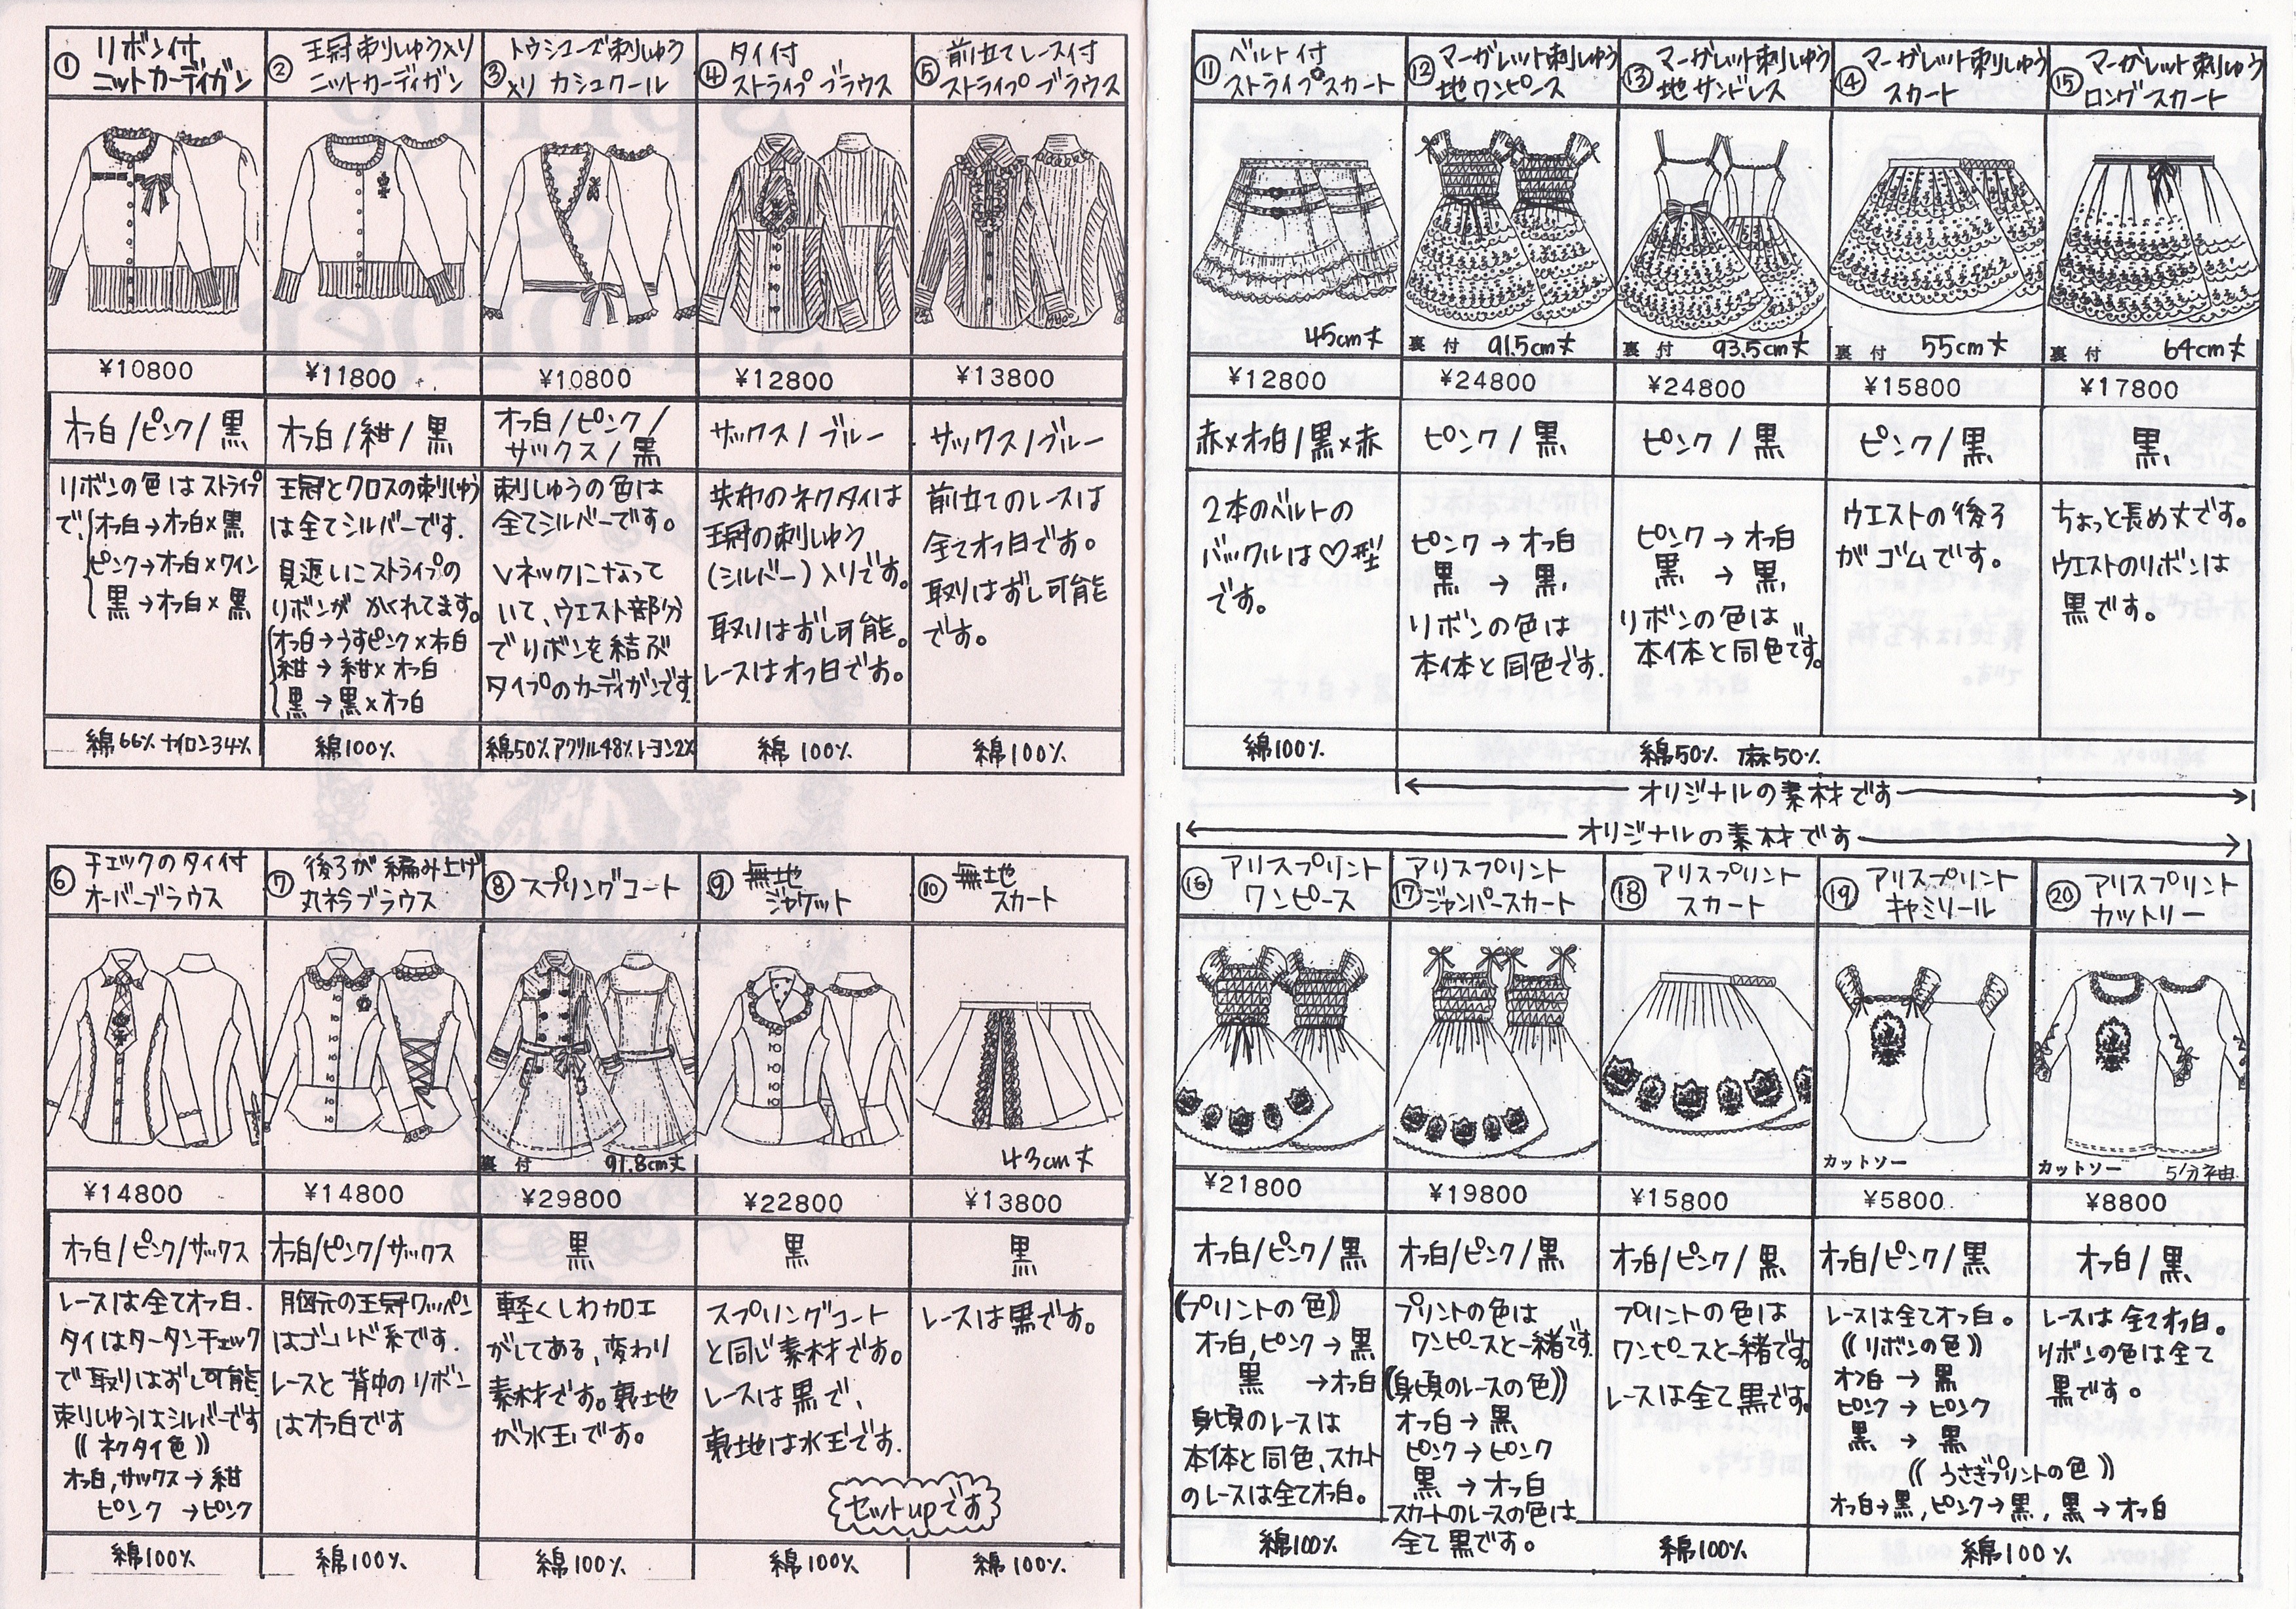 ① リボン付
ニットカーディガン
¥10800
オフ白/ピンク/黒
リボンの色はストライプ
で、オフ白→オフ白×黒
ピンク→オフ白×ワイン
黒→オフ白×黒
綿66% ナイロン34%
② 王冠刺しゅう入り
ニットカーディガン
¥11800
オフ白/紺/黒
王冠とクロスの刺しゅう
は全てシルバーです.
見返しにストライプの
リボンが かくれてます。
オフ白→うすピンク×オフ白
紺→紺×オフ白
黒→黒×オフ白
綿100%
③ トウシューズ刺しゅう
入り カシュクール
¥10800
オフ白/ピンク/
サックス/黒
刺しゅうの色は
全てシルバーです。
Vネックになって
いて、ウエスト部分
でリボンを結ぶ
タイプのカーディガンです
綿50% アクリル48% レーヨン2%
④ タイ付
ストライプ ブラウス
¥12800
サックス/ブルー
共布のネクタイは
王冠の刺しゅう
(シルバー)入りです。
取りはずし可能。
レースはオフ白です。
綿 100%
⑤ 前立てレース付
ストライプ ブラウス
¥13800
サックス/ブルー
前立てのレースは
全てオフ白です。
取りはずし可能
です。
綿100%
⑥ チェックのタイ付
オーバーブラウス
¥14800
オフ白/ピンク/サックス
レースは全てオフ白.
タイはタータンチェック
で取りはずし可能.
刺しゅうはシルバーです
《ネクタイ色》
オフ白,サックス→紺
ピンク →ピンク
綿100%
⑦ 後ろが編み上げ
丸衿ブラウス
¥14800
オフ白/ピンク/サックス
胸元の王冠ワッペン
はゴールド系です.
レースと背中のリボン
はオフ白です
綿100%
⑧ スプリングコート
裏 付 91.8cm丈
¥29800
黒
軽くしわ加工
がしてある、変わり
素材です。裏地
が水玉です。
綿100%
⑨ 無地
ジャケット
¥22800
黒
スプリングコート
と同じ素材です。
レースは黒で、
裏地は水玉です.
セットupです
綿 100%
⑩ 無地
スカート
43cm丈
¥13800
黒
レースは黒です。
綿 100%
⑪ ベルト付
ストライプスカート
45cm丈
¥12800
赤×オフ白/黒×赤
2本のベルトの
バックルは♡型
です。
綿100%
⑫ マーガレット刺しゅう
地ワンピース
裏 付 91.5cm丈
¥24800
ピンク/黒
ピンク→オフ白
黒 →黒
リボンの色は
本体と同色です.
⑬ マーガレット刺しゅう
地サンドレス
裏 付 93.5cm丈
¥24800
ピンク/黒
ピンク→オフ白
黒 →黒
リボンの色は
本体と同色です。
⑭ マーガレット刺しゅう
スカート
裏 付 55cm丈
¥15800
ピンク/黒
ウエストの後ろ
がゴムです。
⑮ マーガレット刺しゅう
ロングスカート
裏 付 64cm丈
¥17800
黒
ちょっと長め丈です。
ウエストのリボンは
黒です。
綿50% 麻50%
オリジナルの素材です
オリジナルの素材です
⑯ アリスプリント
ワンピース
¥21800
オフ白/ピンク/黒
《プリントの色》
オフ白,ピンク→黒
黒 →オフ白
身頃のレースは
本体と同色、スカート
のレースは全てオフ白。
綿100%
⑰ アリスプリント
ジャンパースカート
¥19800
オフ白/ピンク/黒
プリントの色は
ワンピースと一緒です.
《身頃のレースの色》
オフ白→黒
ピンク→ピンク
黒→オフ白
スカートのレースの色は
全て黒です。
⑱ アリスプリント
スカート
¥15800
オフ白/ピンク/黒
プリントの色は
ワンピースと一緒です。
レースは全て黒です。
綿100%
⑲ アリスプリント
キャミソール
カットソー
¥5800
オフ白/ピンク/黒
レースは全てオフ白。
《リボンの色》
オフ白→黒
ピンク→ピンク
黒→黒
⑳ アリスプリント
カットソー
カットソー 5分袖
¥8800
オフ白/黒
レースは全てオフ白。
リボンの色は全て
黒です。
《うさぎプリントの色》
オフ白→黒,ピンク→黒,黒→オフ白
綿100%